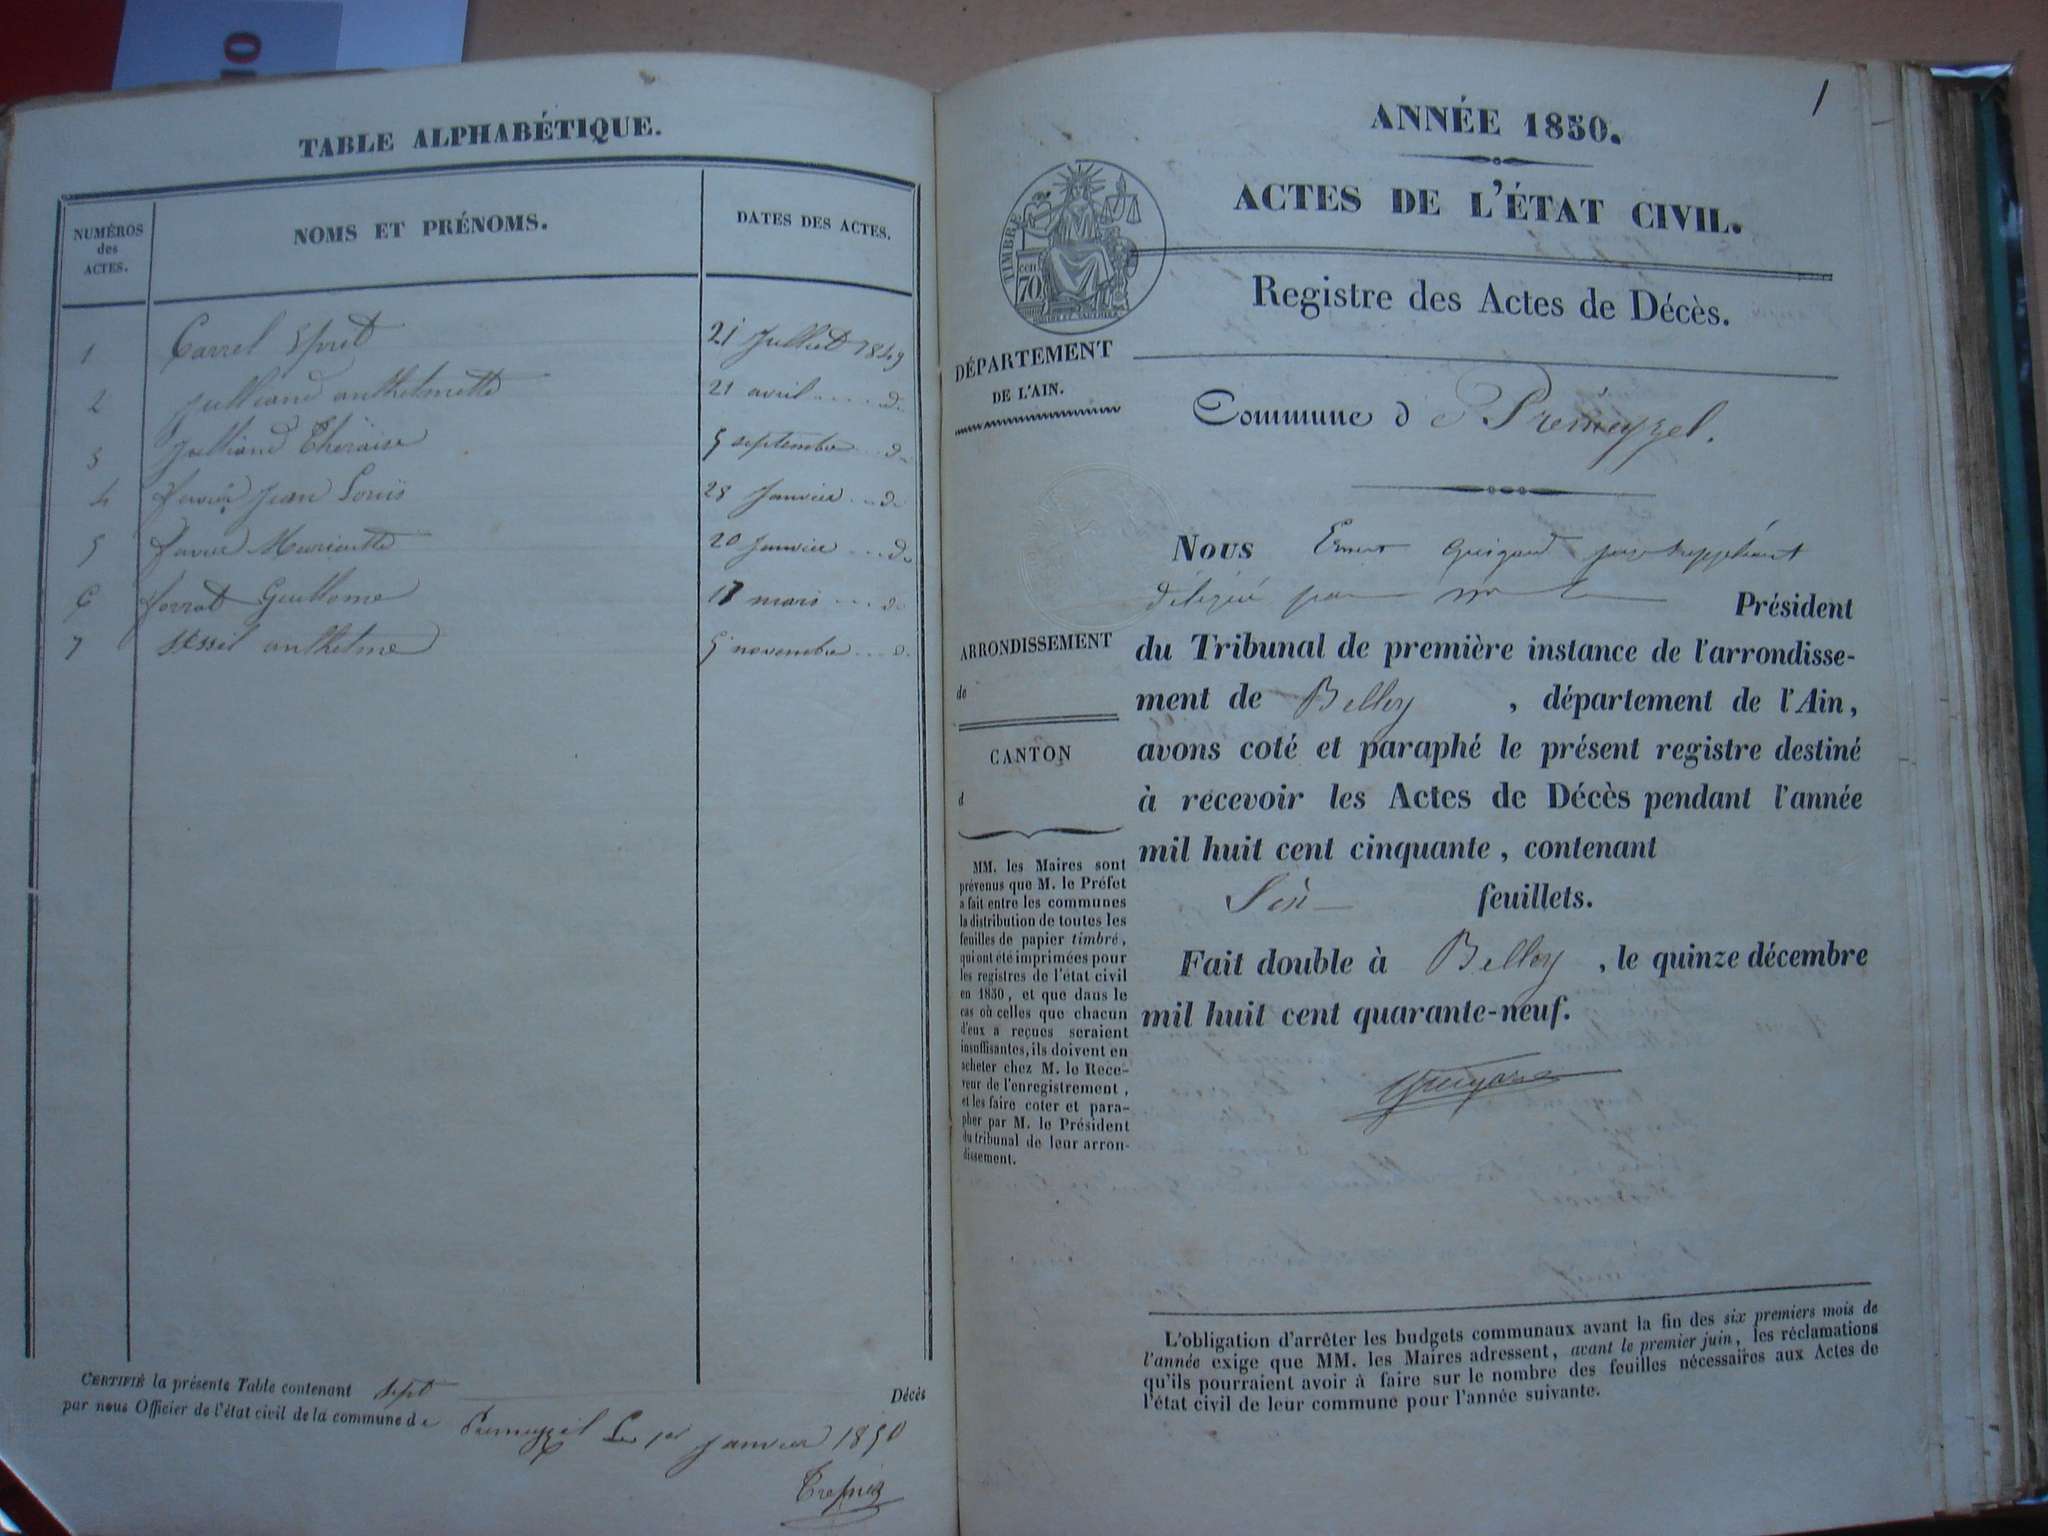 TABLE ALPHABÉTIQUE.
NUMÉROS des ACTES.
NOMS ET PRÉNOMS.
DATES DES ACTES.
1 Carrel 21 Juilliet 1849
2 Julliand anthelmette 21 avril .... do
3 Julliand Theraise 5 septembre ... do
4 Jean Louis 28 Janvier ... do
5 favier Mariette 20 Janvier ... do
6 ferrat Guillome 17 mars ... do
7 anthelme 5 novembre ... do
CERTIFIÉ la présente Table contenant sept Décès
par nous Officier de l'état civil de la commune de Premeyzel Le 1er janvier 1850
1
ANNÉE 1850.
ACTES DE L'ÉTAT CIVIL.
TIMBRE
cen 70
Registre des Actes de Décès.
DÉPARTEMENT
DE L'AIN.
Commune de Premeyzel.
Nous Guigard juge suppléant
délégué par Mr le Président
du Tribunal de première instance de l'arrondisse-
ment de Belley , département de l'Ain,
avons coté et paraphé le présent registre destiné
à recevoir les Actes de Décès pendant l'année
mil huit cent cinquante, contenant
Six feuillets.
Fait double à Belley , le quinze décembre
mil huit cent quarante-neuf.
Guigard
ARRONDISSEMENT
de
CANTON
d
MM. les Maires sont
prévenus que M. le Préfet
a fait entre les communes
la distribution de toutes les
feuilles de papier timbré,
qui ont été imprimées pour
les registres de l'état civil
en 1850, et que dans le
cas où celles que chacun
d'eux a reçues seraient
insuffisantes, ils doivent en
acheter chez M. le Rece-
veur de l'enregistrement,
et les faire coter et para-
pher par M. le Président
du tribunal de leur arron-
dissement.
L'obligation d'arrêter les budgets communaux avant la fin des six premiers mois de
l'année exige que MM. les Maires adressent, avant le premier juin, les réclamations
qu'ils pourraient avoir à faire sur le nombre des feuilles nécessaires aux Actes de
l'état civil de leur commune pour l'année suivante.